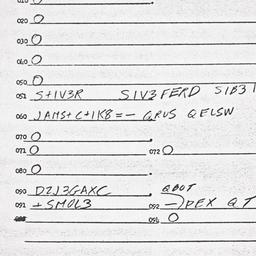 010 O
020 O
030 O
040 O
050 O
051 S+IV3R SIV3FERD SIB3I
060 JAMS+C+IK8=- GRUS QELSW
070 O
071 O 072 O
080 O
090 DZJ3GAXC QBOT
091 +SMOL3 092 -)PEX QT
096 O